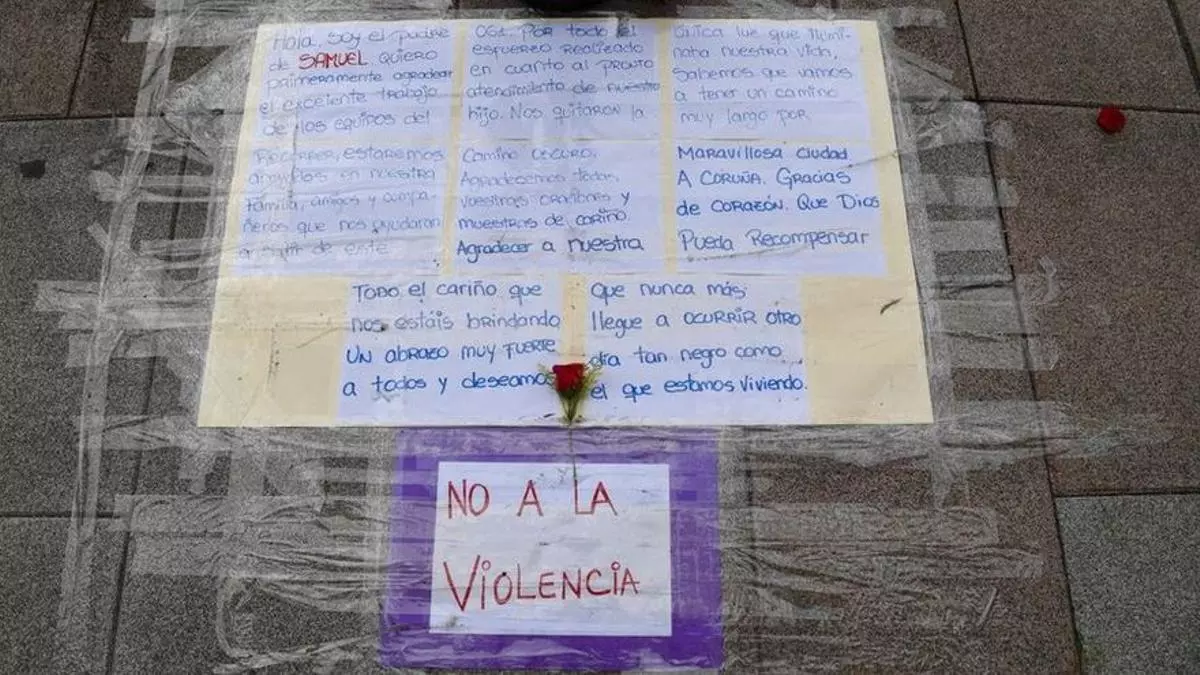 Hola, soy el padre
de SAMUEL quiero
paimeramente agradecer
el excelente trabajo
de los equipos del
061. Por todo el
esfuerzo realizado
en cuanto al pronto
atendimiento de nuestro
hijo. Nos quitaron la
única luz que ilumi-
nata nuestra vida,
Sabemos que vamos
a tener un camino
muy largo por
Recorrer, estaremos
apoyados en nuestra
familia, amigos y compa-
ñeros que nos ayudaran
a salir de este
Camino oscuro.
Agradecemos todas
vuestras oraciones y
muestras de cariño.
Agradecer a nuestra
Maravillosa ciudad
A Coruña. Gracias
de corazón. Que Dios
Pueda Recompensar
Todo el cariño que
nos estáis brindando
un abrazo muy fuerte
a todos y deseamos
Que nunca más
llegue a ocurrir otro
día tan negro como
el que estamos viviendo.
NO A LA
VIOLENCIA